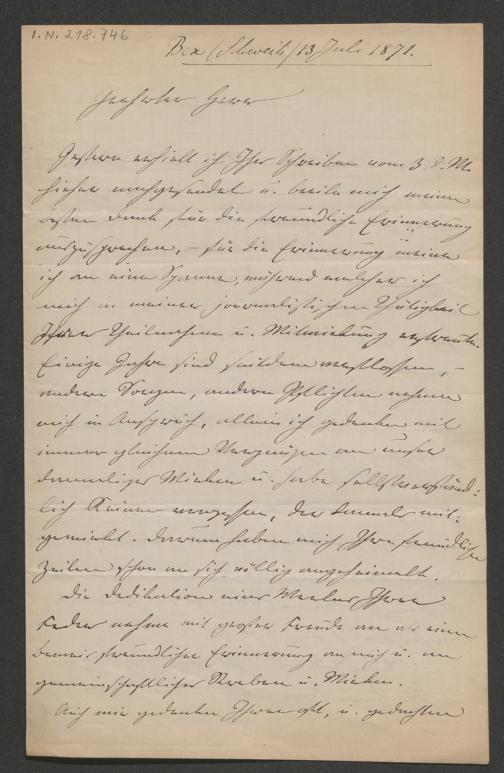 I.N. 218.746
Bex (Schweitz) 13 Juli 1871.
Geehrter Herr
Gestern erhielt ich Ihr Schreiben vom 3 d. M.
hieher nachgesendet u. beeile mich meinen
besten Dank für die freundliche Erinnerung
auszusprechen, – für die Erinnerung meine
ich an eine Spanne, während welcher ich
mich in meiner journalistischen Thätigkeit
Ihrer Theilnahme u. Mitwirkung erfreute.
Einige Jahre sind seitdem verflossen, –
andere Sorgen, andere Pflichten nehmen
mich in Anspruch, allein ich gedenke mit
immer gleichem Vergnügen an unser
damaliges Wirken u. habe selbstverständ-
lich Keinen vergessen, der damals mit-
gewirkt. Darum haben mich Ihre freundlichen
Zeilen schon an sich völlig angeheimelt.
Die Dedikation eines Werkes Ihrer
Feder nehme mit großer Freude an als einen
Beweis freundlicher Erinnerung an mich u. an
gemeinschaftliches Streben u. Wirken.
Auch wir gedenken Ihrer oft, u. gedachten